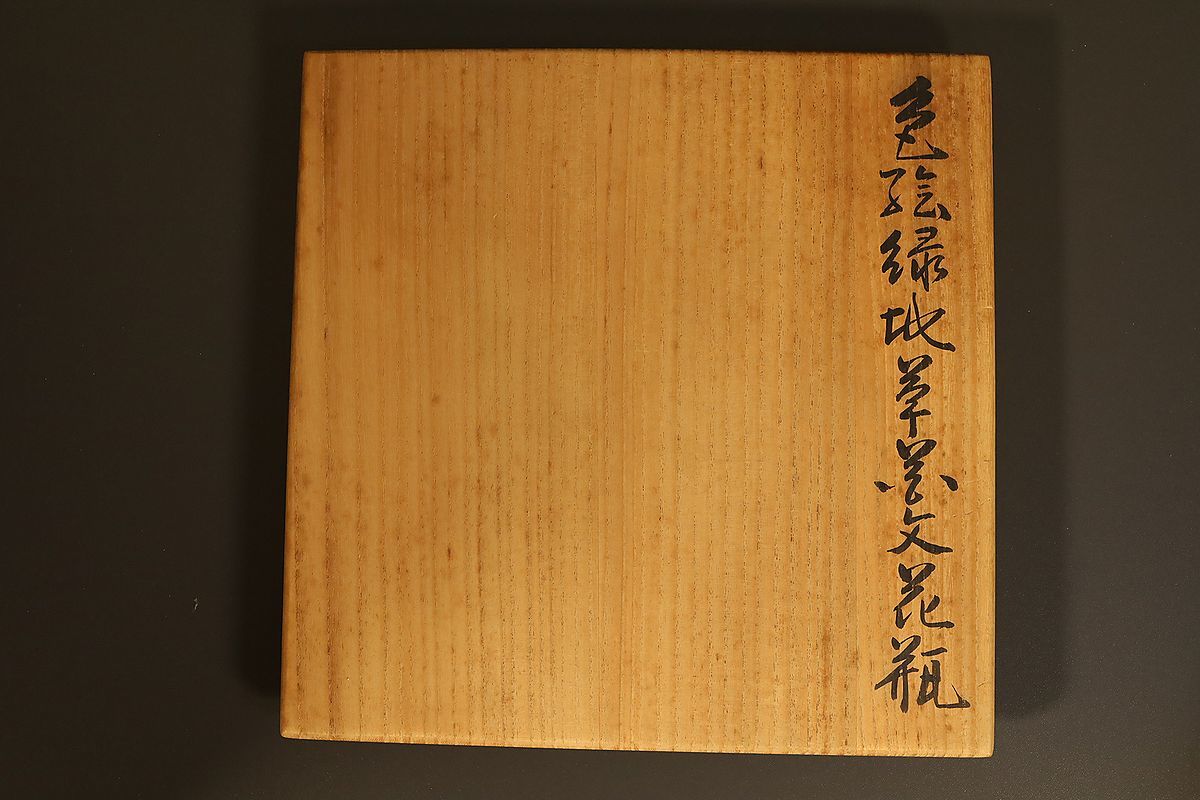 色絵緑地草文花瓶